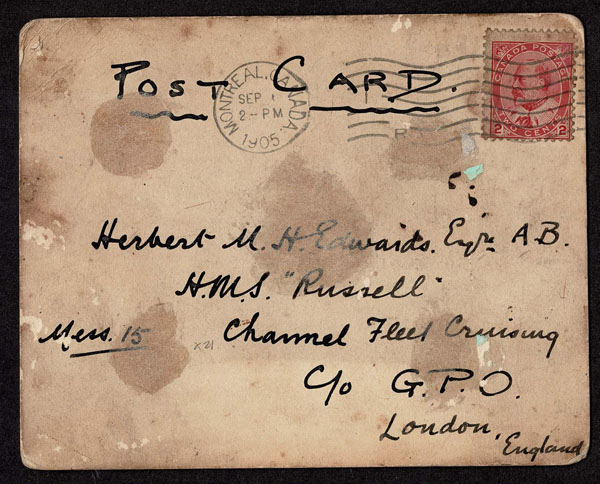 POST CARD.
MONTREAL. CANADA.
SEP 1
2-PM
1905
CANADA POSTAGE
2 TWO CENTS 2
Herbert M. H. Edwards. Esqre A.B.
H.M.S. "Russell"
Mess. 15
x21
Channel Fleet Cruising
C/o G.P.O.
London,
England